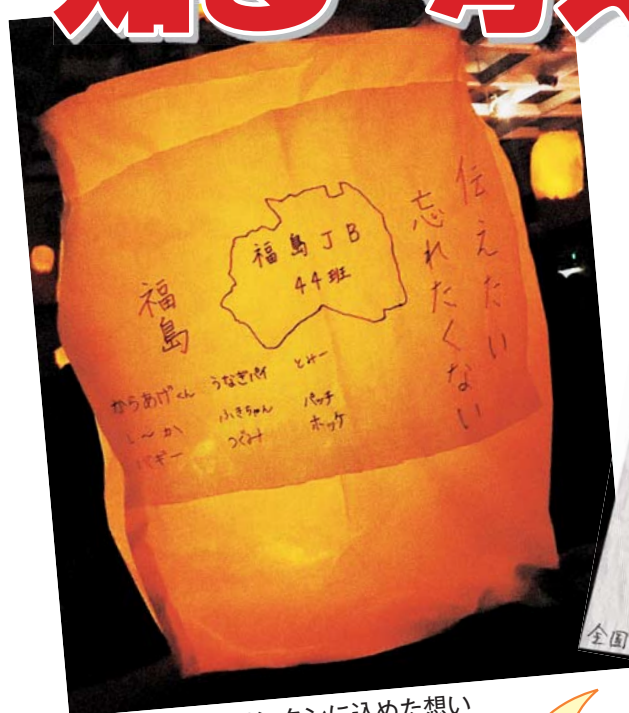 伝えたい
忘れたくない
福島JB
44班
福島
からあげくん うなぎパイ とみー
し～か ふきちゃん パッチ
バギー つぐみ ホッケ
全国
ンに込めた想い